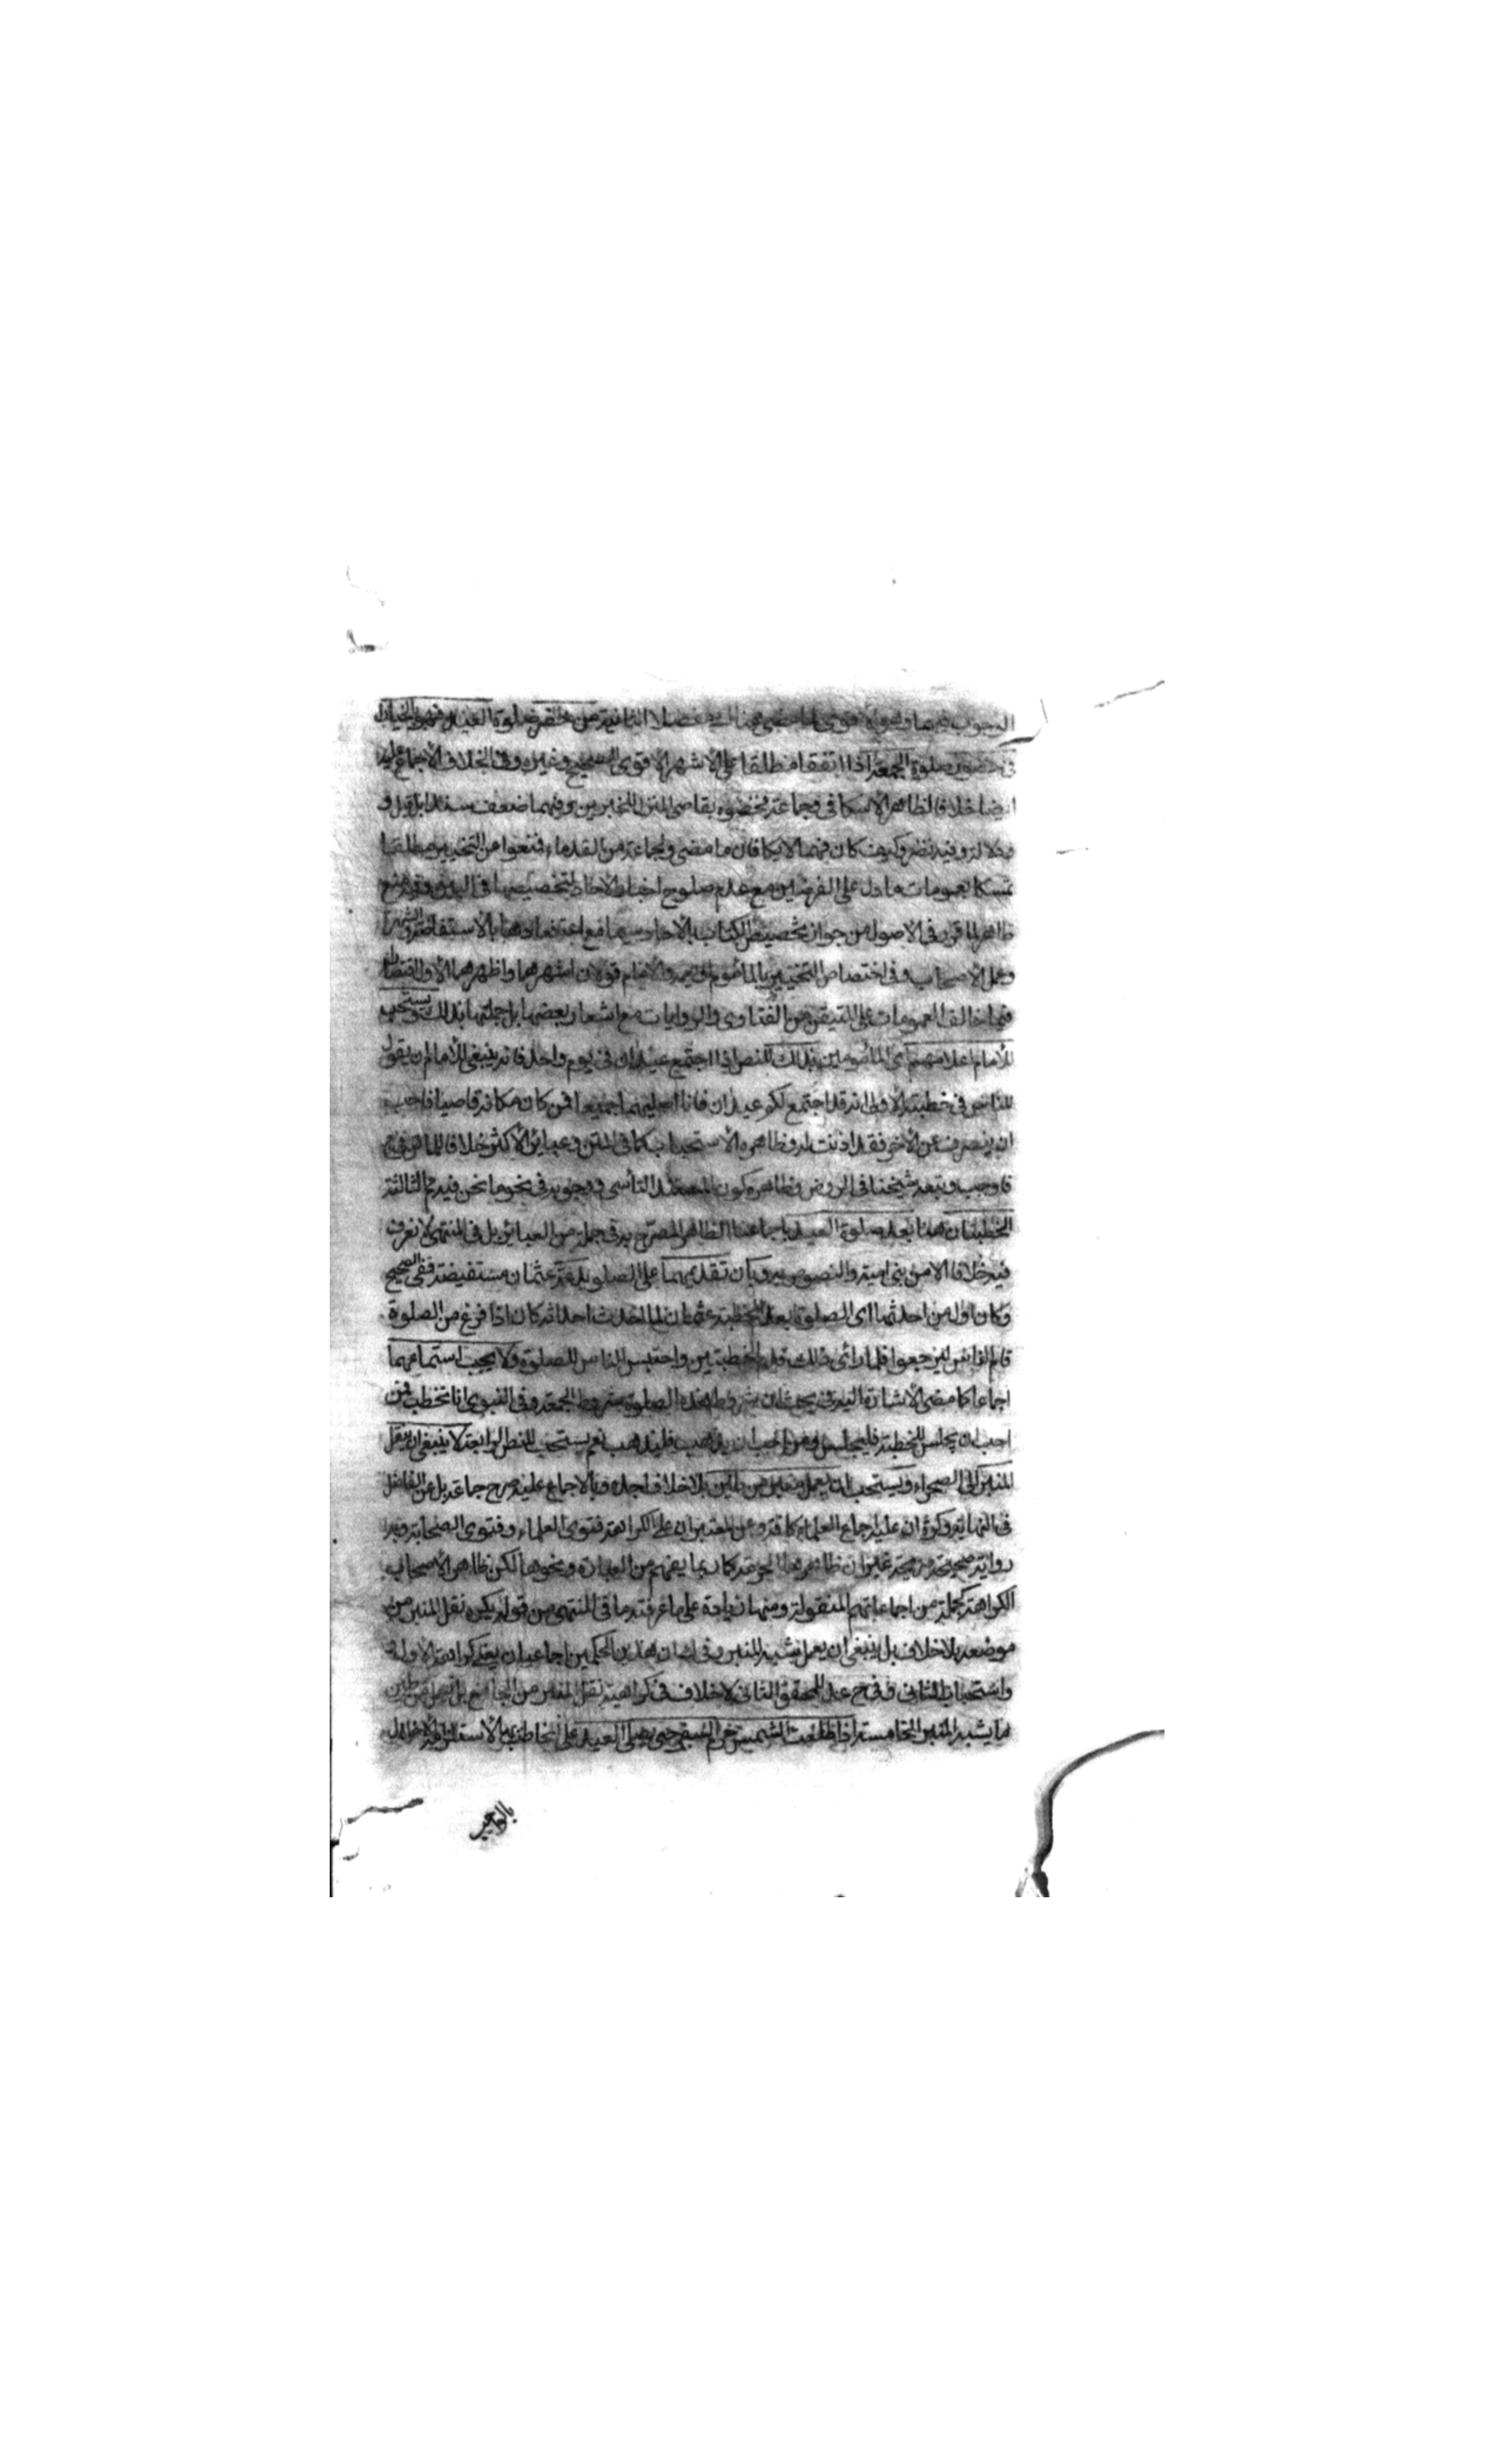 الوجوب فيهما الثانية من حضر صلوة العيد فهو بالخيار
فى حضور صلوة الجمعة اذا اتفقا مطلقا على الاشهر الاقوى للصحيح وغيره وفى الخلاف الاجماع عليه
ايضا خلافا لظاهر الاسكافى وجماعة فخصوه بقاصى المنزل للخبرين وفيهما ضعف سندا بل قيل و
دلالة وفيه نظر وكيف كان فهما لا يكافان ما مضى ولجماعة من القدماء فمنعوا عن التخيير مطلقا
تمسكا بعمومات ما دل على الفرضين مع عدم صلوح اخبار الاحاد لتخصيصها فى البين وقد منع
ظاهر لما قرر فى الاصول من جواز تخصيص الكتاب بالاحاد سيما مع اعتضادها بالاستفاضة والشهرة
وعمل الاصحاب وفى اختصاص التخيير بالماموم والامام قولان اشهرهما واظهرهما الاول اقتصارا
فيما خالف العمومات على المتيقن من الفتاوى والروايات مع اشعار بعضها بل جملتها بذلك ويستحب
للامام اعلامهم اى المأمومين بذلك للنص اذا اجتمع عيدان فى يوم واحد فانه ينبغى للامام ان يقول
للناس فى خطبته الاولى انه قد اجتمع لكم عيدان فانا اصليهما جميعا فمن كان مكانه قاصيا فاحب
ان ينصرف عن الاخر فقد اذنت له وظاهره الاستحباب كما فى المتن وعبائر الاكثر خلافا للماتن فى يع
فاوجب وتبعه شيخنا فى الروض وظاهره كون المستند التأسى ووجوبه فى نحو ما نحن فيه الثالثة
الخطبتان هنا بعد صلوة العيد باجماعنا الظاهر المصرح به فى جملة من العبائر بل فى المنتهى لا نعرف
فيه خلافا الا من بنى امية والنصوص به وبان تقديمهما على الصلوة بدعة عثمان مستفيضة ففى الصحيح
وكان اول من احدثها اى الصلوة بعد الخطبة عثمان لما احدث احداثه كان اذا فرغ من الصلوة
قام الناس ليرجعوا فلما رأى ذلك قدم الخطبتين واحتبس الناس للصلوة ولا يجب استماعهما
اجماعا كما مضى الاشارة اليه فى بحث ان شروط هذه الصلوة شروط الجمعة وفى النبوى انا نخطب فمن
احب ان يجلس للخطبة فليجلس ومن احب ان يذهب فليذهب نعم يستحب للنص الرابعة لا ينبغى ان ينقل
المنبر الى الصحراء ويستحب ان يعمل منبر من طين بلا خلاف اجده وبالاجماع عليه صرح جماعة بل عن الفاضل
فى النهاية وكرة ان عليه اجماع العلماء كافة وعن المعتبر ان على الكراهة فتوى العلماء وفتوى الصحابة وبه
رواية صحيحة صريحة غير ان ظاهرها الحرمة كما ربما يفهم من العبارة ونحوها لكن ظاهر الاصحاب
الكراهة كجملة من اجماعاتهم المنقولة ومنها زيادة على ما عرفته ما فى المنتهى من قوله يكره نقل المنبر من
موضعه بلا خلاف بل ينبغى ان يعمل شبه المنبر وفى ان هذين الحكمين اجماعيان يعنى كراهة الاول
واستحباب الثانى وفى ح عند المحقق الثانى لا خلاف فى كراهية نقل المنبر من الجامع بل يعمل من طين
ما يشبه المنبر الخامسة اذا طلعت الشمس حرم السفر حتى يصلى العيد على المخاطب بها لاستلزامه الاخلال
بالواجب